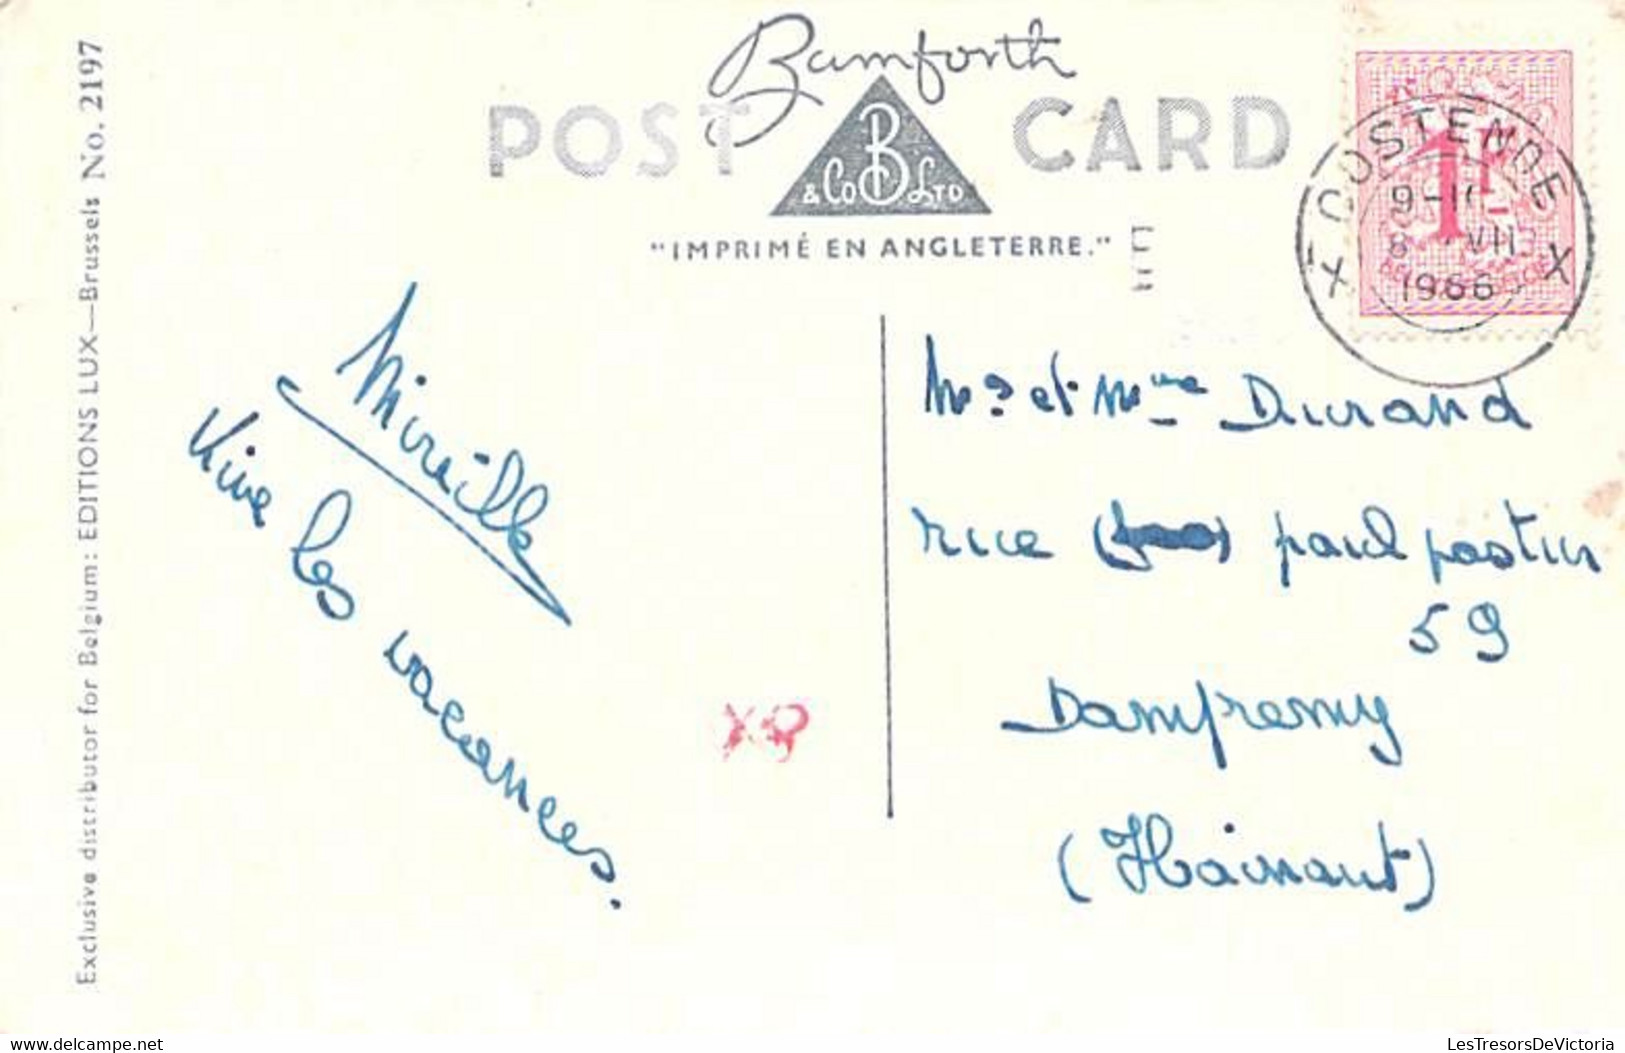 Bamforth
POST CARD
B
& Co Ltd
"IMPRIMÉ EN ANGLETERRE."
Exclusive distributor for Belgium: EDITIONS LUX—Brussels No. 2197
OOSTENDE
1F
8 VII
1966
X X
Mireille
Vive les vacances.
Mr et Mme Durand
rue paul pastur
59
Dampremy
(Hainaut)
LesTresorsDeVictoria
www.delcampe.net